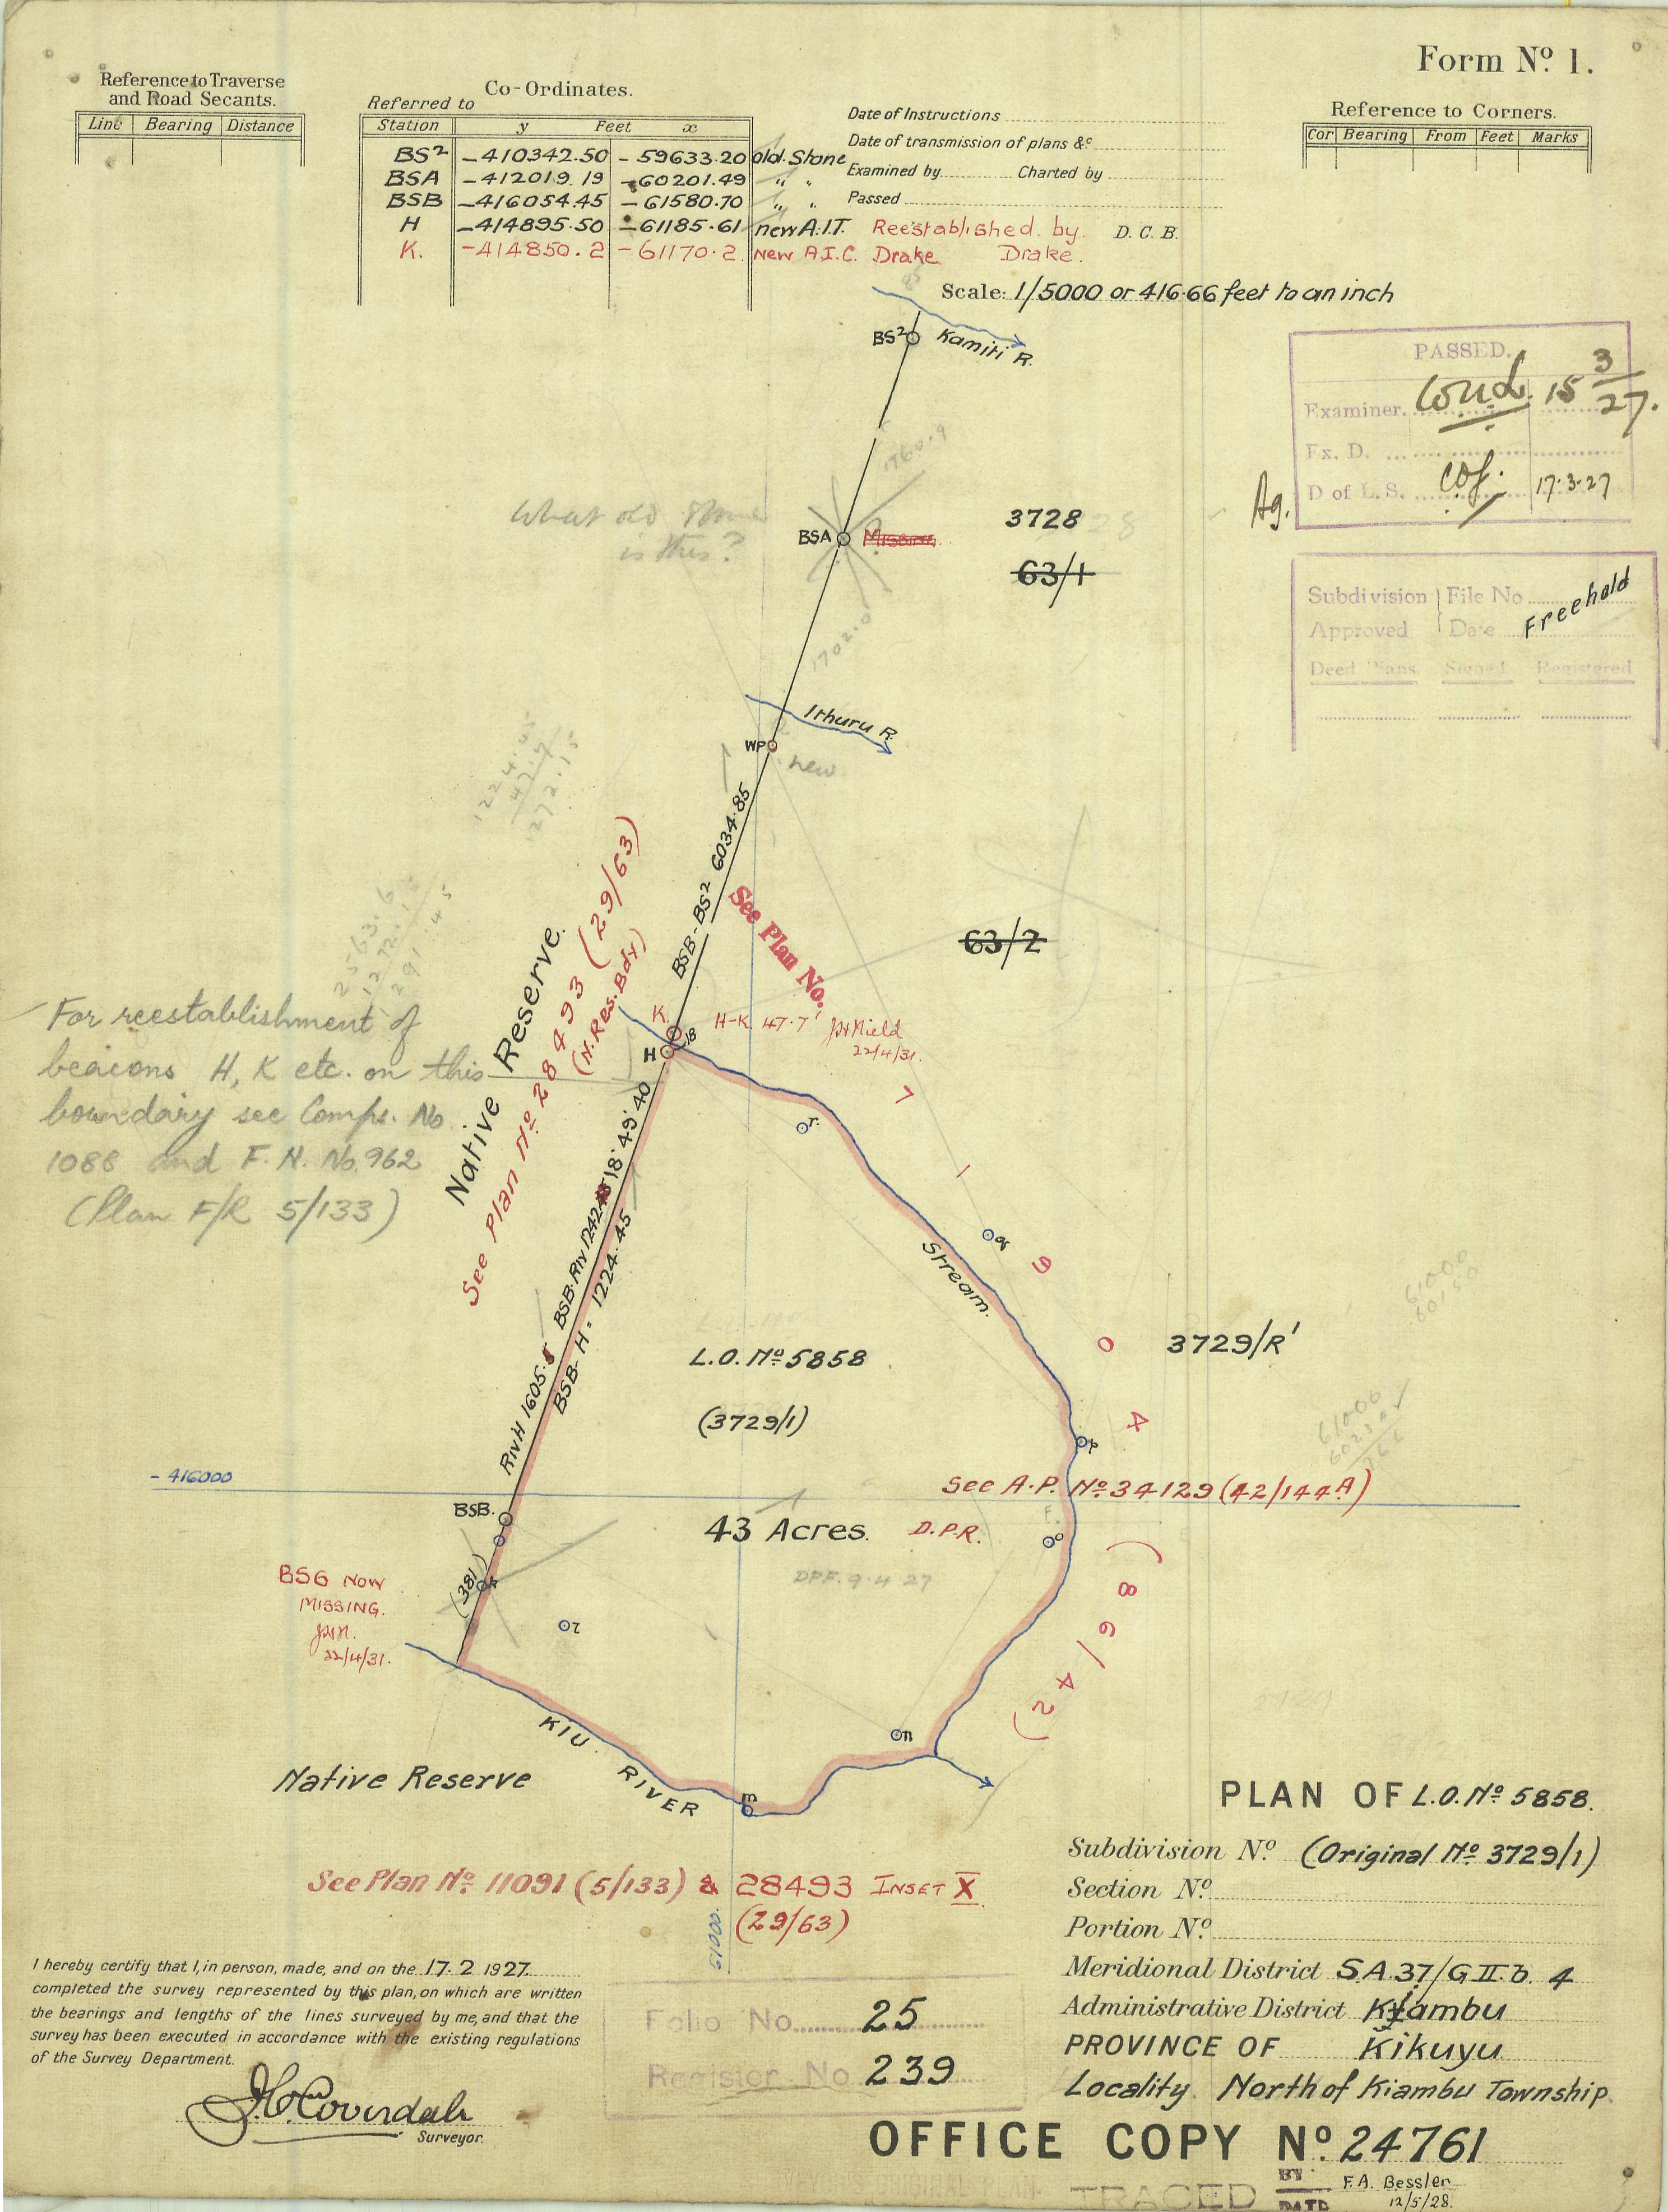 Form Nº 1.
Reference to Traverse
and Road Secants.
Line Bearing Distance
Co-Ordinates.
Referred to
Station y Feet x
BS² -410342.50 -59633.20 old Stone
BSA -412019.19 -60201.49 " "
BSB -416054.45 -61580.70 " "
H -414895.50 -61185.61 new A.I.T. Reestablished by D.C.B.
K. -414850.2 -61170.2 New A.I.C. Drake Drake.
Date of Instructions
Date of transmission of plans &c
Examined by Charted by
Passed
Reference to Corners.
Cor Bearing From Feet Marks
Scale: 1/5000 or 416.66 feet to an inch
BS²
Kamiti R.
PASSED.
Examiner. 15 3/27.
Ex. D.
Ag. D of L.S. 17.3.27
Subdivision File No
Approved Date
Freehold
Deed Plans Signed Registered
1760.9
What old Stone
is this?
BSA Missing
3728
63/1
1702.0
Ithuru R.
WP
new
BSB-BS² 6034.85
See Plan No.
63/2
Native Reserve.
See Plan Nº 28493 (29/63)
(N. Res. Bdy)
K.
H-K 47.7'
22/4/31.
H
18
For reestablishment of
beacons H, K etc. on this
boundary see Comps. No
1088 and F.N. No. 962
(Plan F/R 5/133)
18° 49' 40
BSB-Riv 1242
BSB-H = 1224.45
Riv H 1605.
r
q
Stream.
7 1 9 0 4
(86/42)
L.O. Nº 5858
(3729/1)
3729/R'
p
- 416000
See A.P. Nº 34129 (42/144A)
BSB.
43 Acres. D.P.R.
o
DPF. 9.4.27
BSG NOW
MISSING.
22/4/31.
(381)
n
m
KIU RIVER
Native Reserve
See Plan Nº 11091 (5/133) & 28493 INSET X
(29/63)
61000
PLAN OF L.O. Nº 5858.
Subdivision Nº (Original Nº 3729/1)
Section Nº
Portion Nº
Meridional District S.A.37/G II.b. 4
Administrative District Kyambu
PROVINCE OF Kikuyu
Locality North of Kiambu Township.
I hereby certify that I, in person, made, and on the 17.2 1927.
completed the survey represented by this plan, on which are written
the bearings and lengths of the lines surveyed by me, and that the
survey has been executed in accordance with the existing regulations
of the Survey Department.
Surveyor.
Folio No. 25
Register No 239
OFFICE COPY Nº 24761
TRACED BY F.A. Bessler
DATE 12/5/28.